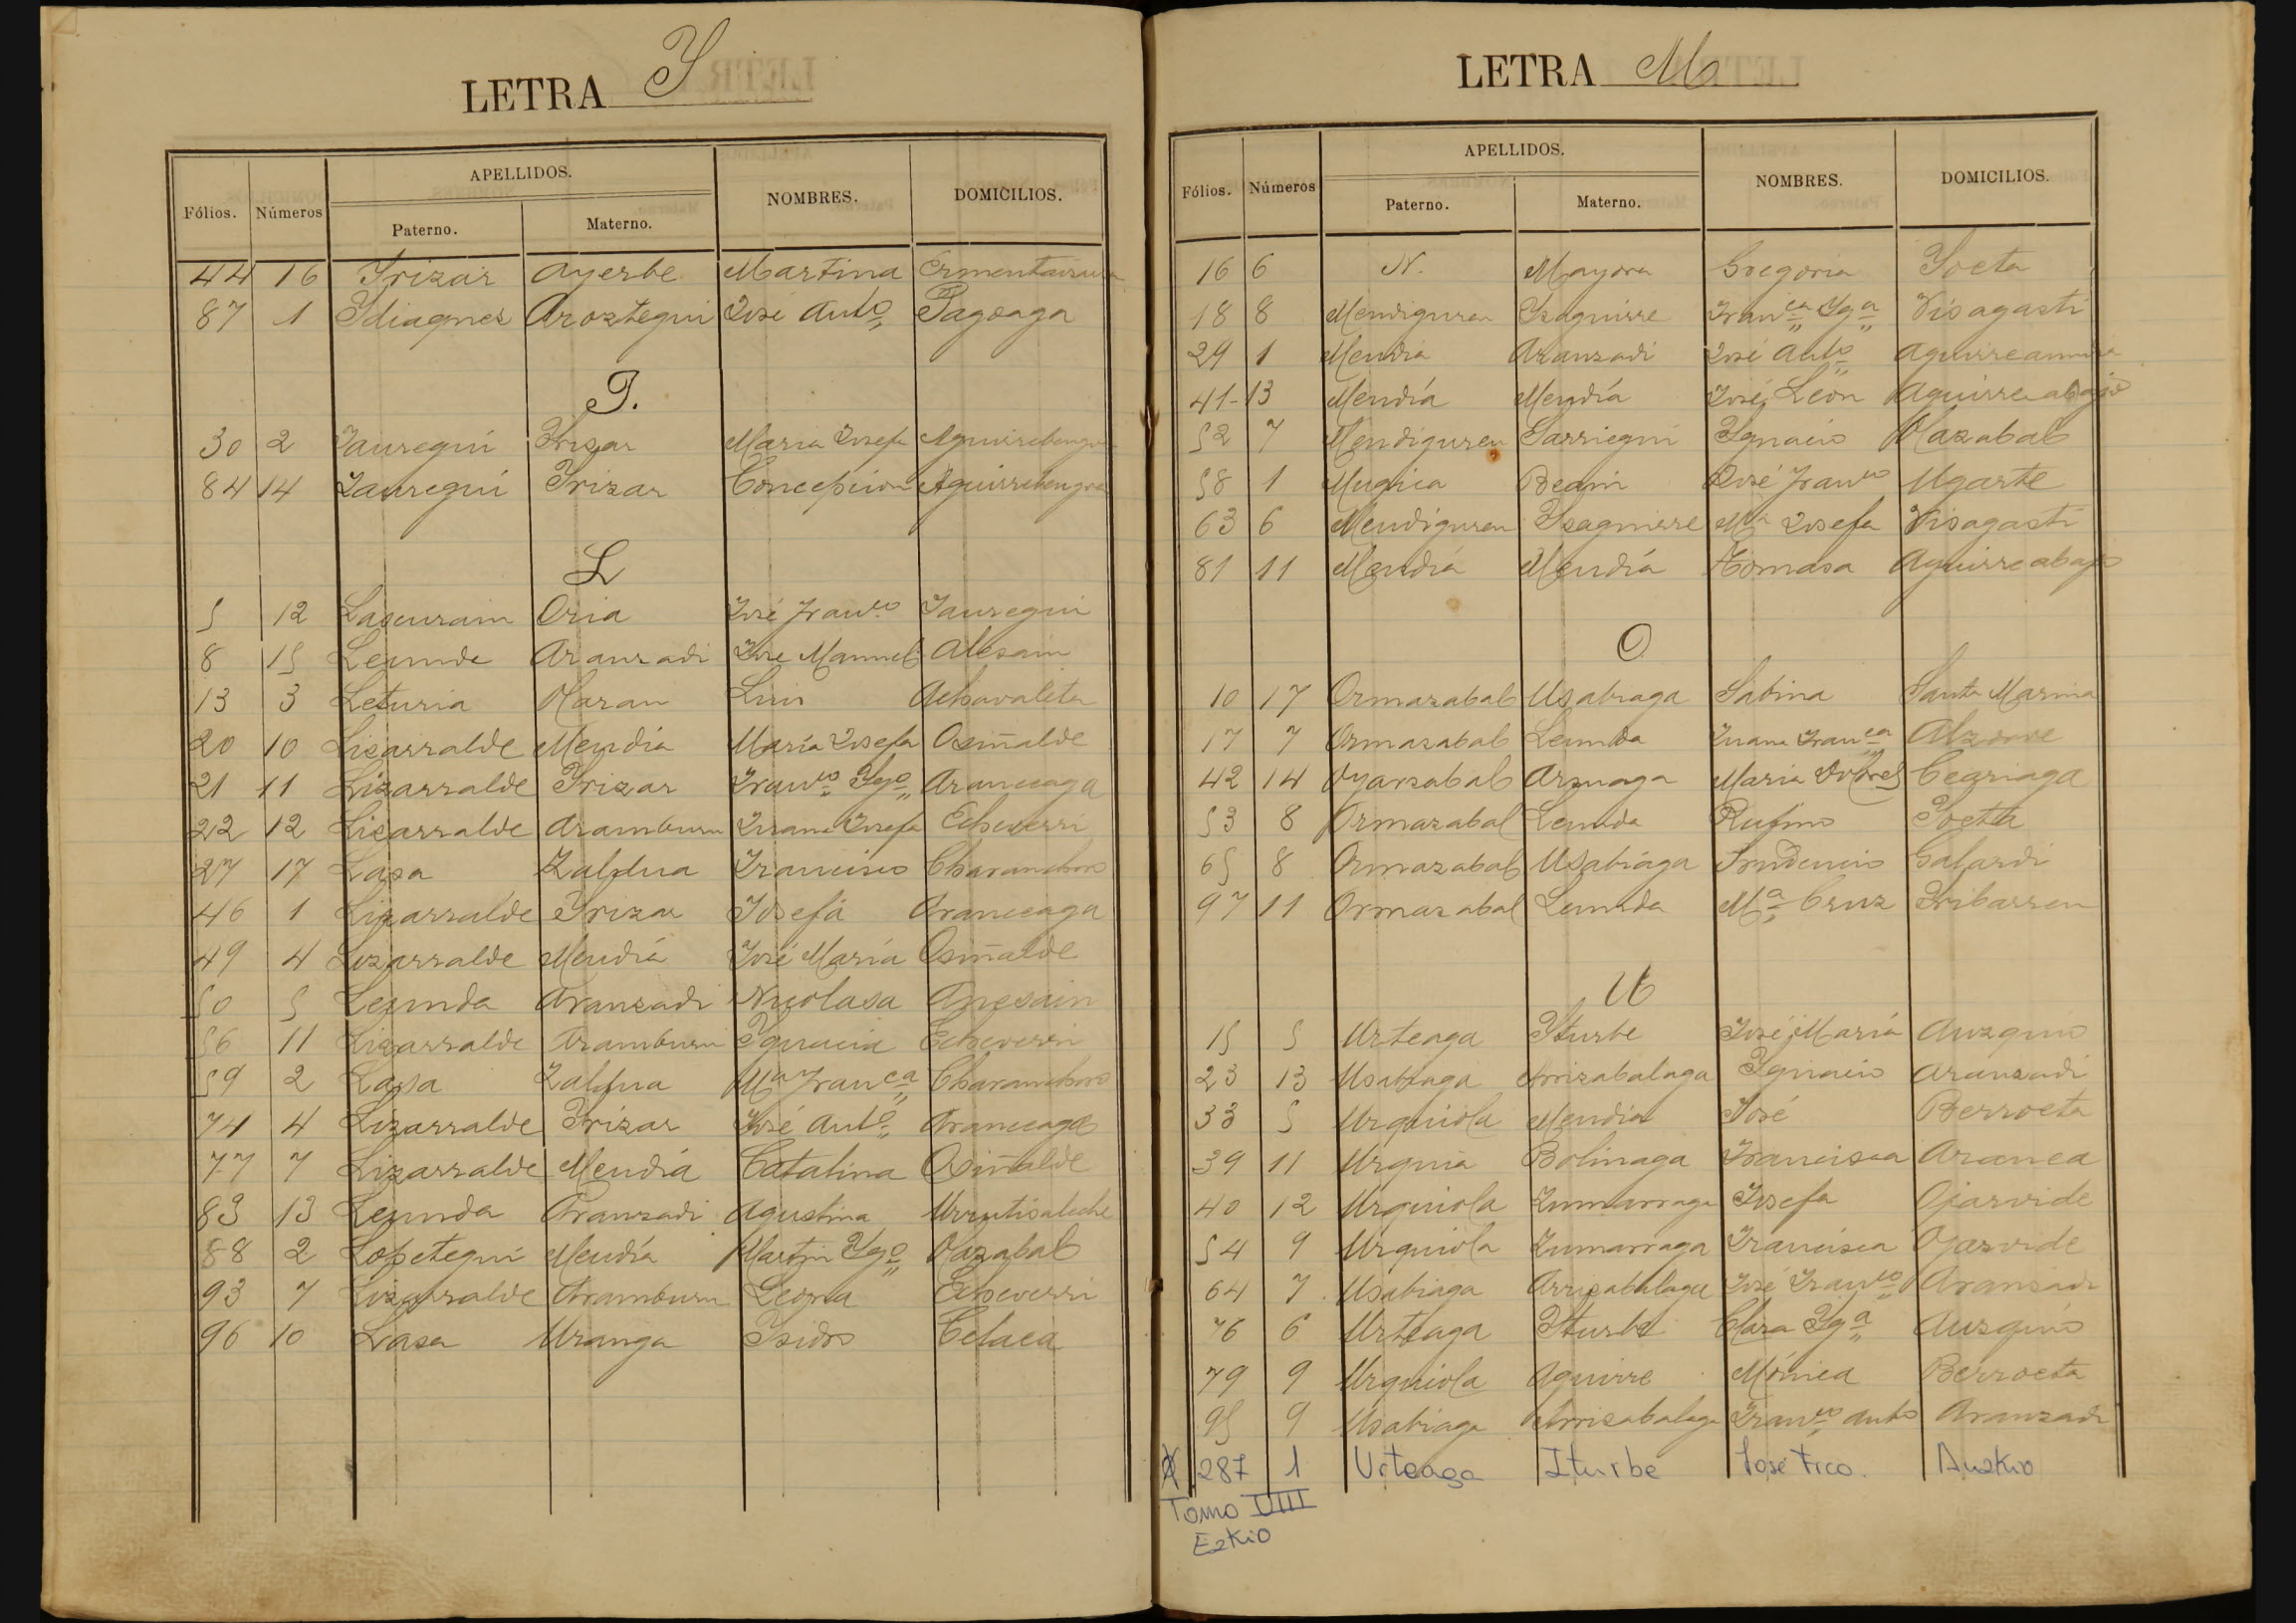 LETRA Y
Fólios. Números APELLIDOS. NOMBRES. DOMICILIOS.
Paterno. Materno.
44 16 Yrizar Ayerbe Martina
87 1 Ydiaquez Aroztegui José Antº Pagoaga
J.
30 2 Jauregui Yrizar Maria Josefa
84 14 Jauregui Yrizar Concepcion
L
5 12 Lascurain Oria José Franco Jauregui
8 15 Leunda Aranzadi José Manuel Alesain
13 3 Leturia Maran Luis Achavaleta
20 10 Lizarralde Mendia María Josefa Osiñalde
21 11 Lizarralde Yrizar Franco Ygº Aranceaga
22 12 Lizarralde Aramburu Juana Josefa Echeverri
27 17 Lasa Zaldua Francisco
46 1 Lizarralde Yrizar Josefa Aranceaga
49 4 Lizarralde Mendiá José María Osiñalde
50 5 Leunda Aranzadi Nicolasa
56 11 Lizarralde Aramburu Ygnacia Echeverri
59 2 Lasa Zaldua Mª Franca
74 4 Lizarralde Yrizar José Antº Aranceaga
77 7 Lizarralde Mendiá Catalina Osiñalde
83 13 Leunda Aranzadi Agustina
88 2 Lopetegui Mendía Martin Ygº Mazabal
93 7 Lizarralde Aramburu Leona Echeverri
96 10 Lasa Uranga Ysidro Celaea
LETRA M
Fólios. Números APELLIDOS. NOMBRES. DOMICILIOS.
Paterno. Materno.
16 6 N. Mayora Gregoria Yoeta
18 8 Mendiguren Yzaguirre Franca Ygª Visagasti
29 1 Mendia Aranzadi José Antº
41-13 Mendía Mendía José León Aguirreabajo
52 7 Mendiguren Sarriegui Ygnacio Mazabal
58 1 Mugica Beain José Franco Ugarte
63 6 Mendiguren Yzaguirre Mª Josefa Visagasti
81 11 Mendía Mendía Tomasa Aguirreabajo
O
10 17 Ormazabal Usabiaga Sabina Santa Marina
17 7 Ormazabal Leunda Juana Franca
42 14 Oyarzabal Arzuaga Maria Dolores Ceariaga
53 8 Ormazabal Leunda Rufino Yoeta
65 8 Ormazabal Usabiaga Prudencio Galardi
97 11 Ormazabal Leunda Mª Cruz Yribarren
U
15 5 Urteaga Yturbe José María Auzquio
23 13 Usabiaga Arrizabalaga Ygnacio Aranzadi
33 5 Urquiola Mendia José Berroeta
39 11 Urquia Bolinaga Francisca Aranea
40 12 Urquiola Zumarraga Josefa Ojarvide
54 9 Urquiola Zumarraga Francisca Ojarvide
64 7 Usabiaga Arrizabalaga José Franco Aranzadi
76 6 Urteaga Yturbe Clara Ygª Auzquio
79 9 Urquiola Aguirre Mónica Berroeta
95 9 Usabiaga Arrizabalaga Franco Antº Aranzadi
287 1 Urteaga Iturbe José Frco. Auzkio
Tomo VIII
Ezkio